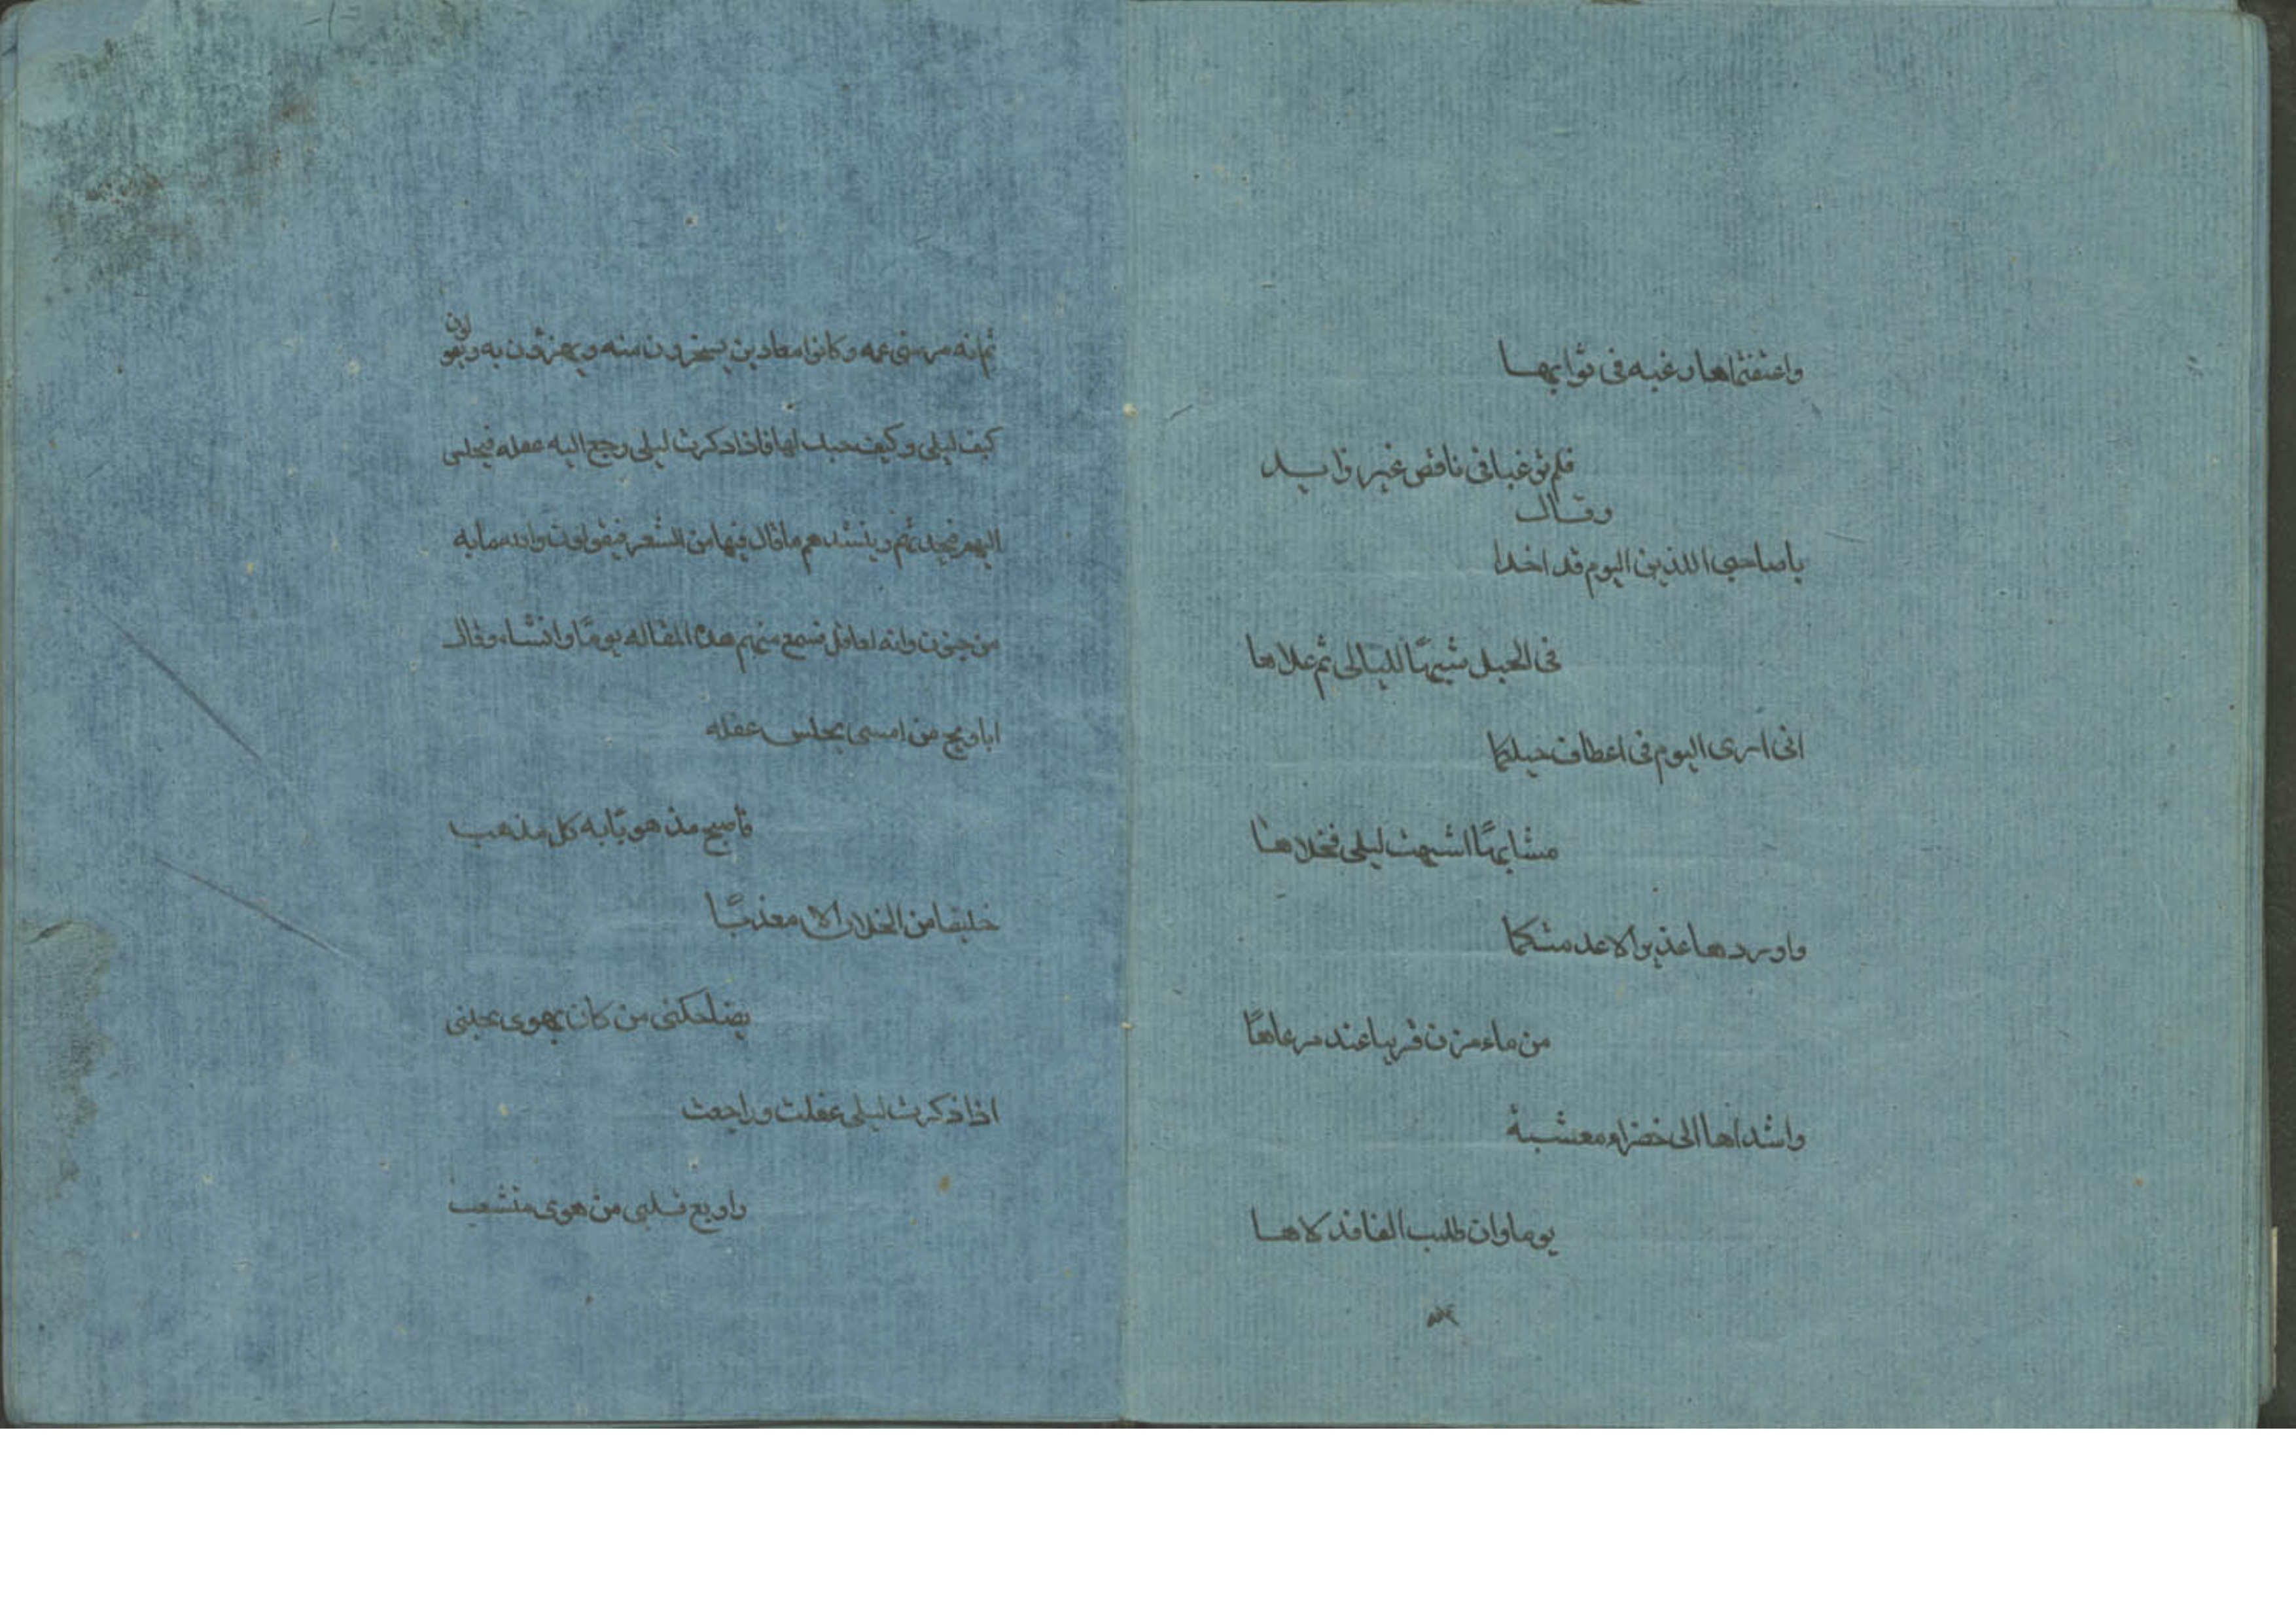 واعتفتماها رغبه في ثوابها
فلم ترغبا في ناقص غير زايد
وقال
يا صاحبي اللذين اليوم قد اخذا
في الحبل شبهًا لليلى ثم علاها
اني ارى اليوم في اعطاف حبلكما
مشابهًا اشبهت ليلى فخلاها
واورداها غديرا لا عدمتكما
من ماء مزن قريبا عند مرعاها
وارشداها الى خضراء معشبة
يوما وان طلبت الفا فدلاها
ثم انه مر ببني عمه وكانوا معادين يسخرون منه ويهزؤن به ويقولون
كيف ليلى وكيف حبك لها فاذا ذكرت ليلى رجع اليه عقله فيجلس
اليهم فيحدثهم وينشدهم ما قال فيها من الشعر فيقولون والله ما به
من جنون وانه لعاقل فسمع منهم هذه المقاله يومًا وانشاء وقال
اياويح من امسى يخلس عقله
فاصبح مذهوبًا به كل مذهب
خليعا من الخلان الا معذبًا
يضاحكني من كان يهوى تجنبي
اذا ذكرت ليلى عقلت وراجعت
روايع قلبي من هوى متشعب